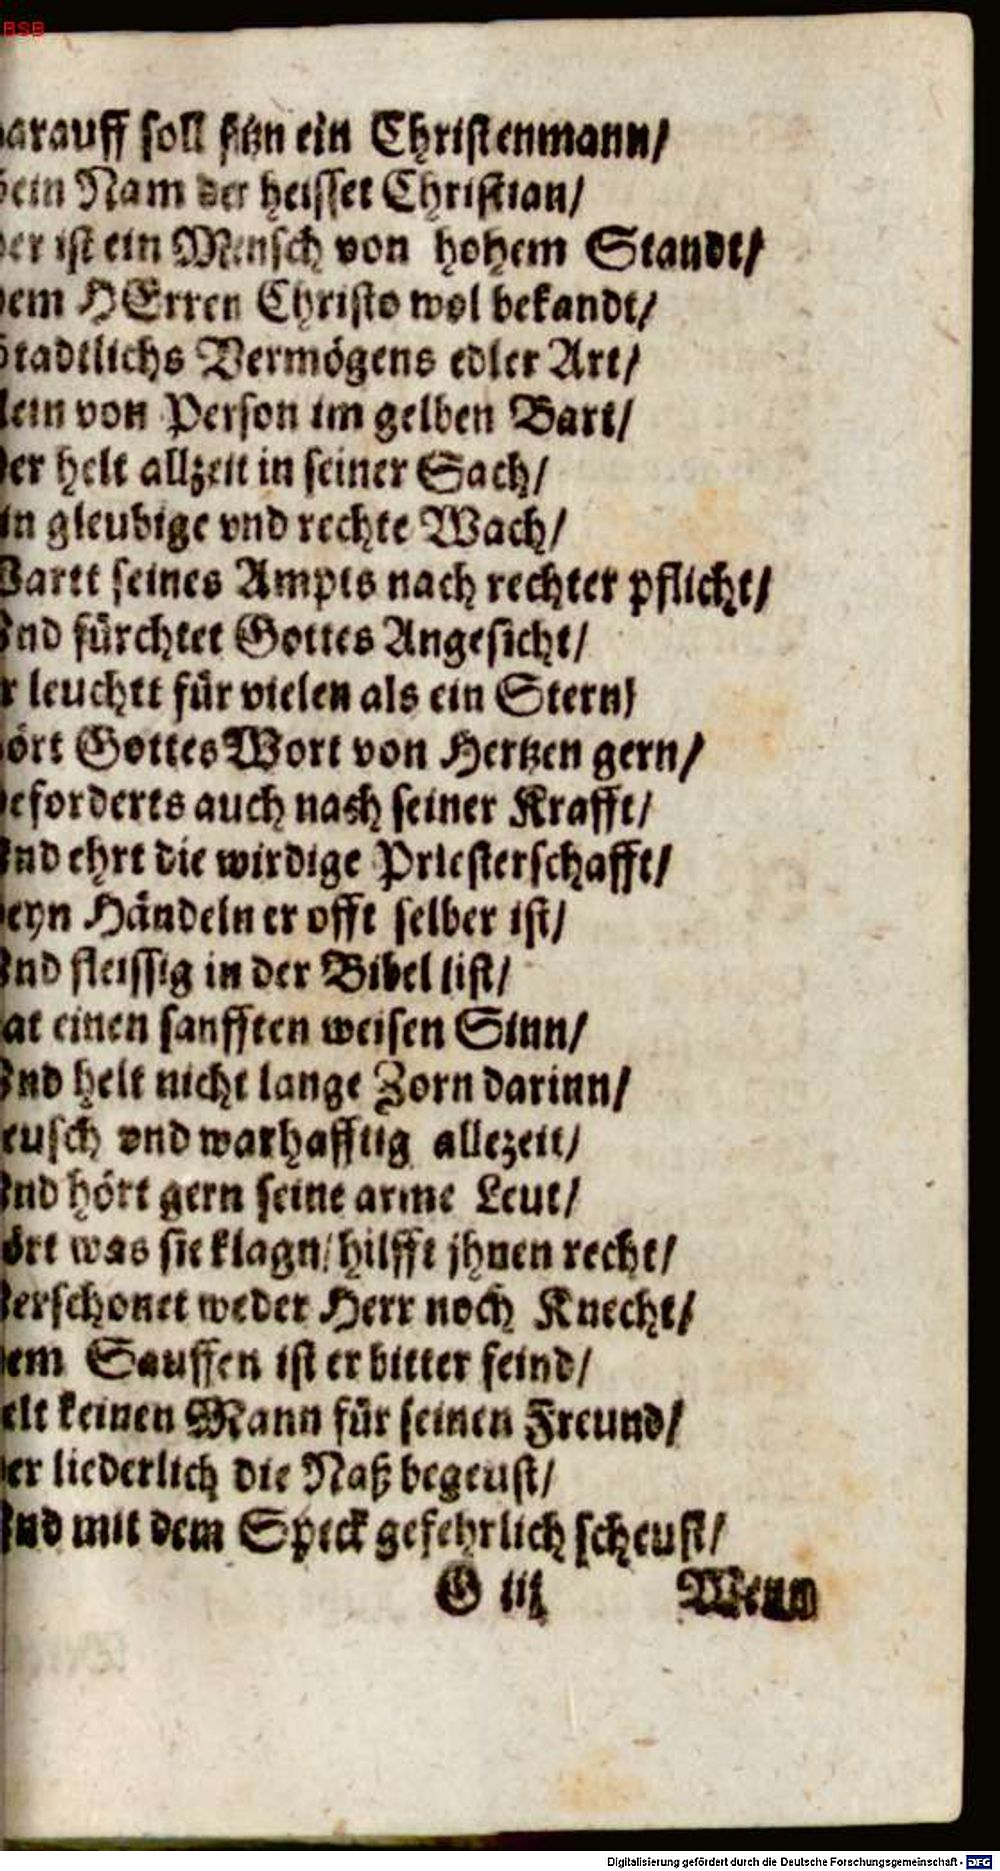 BSB
arauff soll sitzn ein Christenmann/
ein Nam der heisset Christian/
er ist ein Mensch von hohem Standt/
em HErren Christo wol bekandt/
tadtlichs Vermögens edler Art/
lein von Person im gelben Bart/
er helt allzeit in seiner Sach/
in gleubige vnd rechte Wach/
artt seines Ampts nach rechter pflicht/
nd fürchtet Gottes Angesicht/
r leuchtt für vielen als ein Stern/
ört Gottes Wort von Hertzen gern/
eforderts auch nach seiner Krafft/
nd ehrt die wirdige Priesterschafft/
eyn Händeln er offt selber ist/
nd fleissig in der Bibel list/
at einen sanfften weisen Sinn/
nd helt nicht lange Zorn darinn/
eusch vnd warhafftig allezeit/
nd hört gern seine arme Leut/
ört was sie klagn/ hilfft jhnen recht/
erschonet weder Herr noch Knecht/
em Sauffen ist er bitter feind/
elt keinen Mann für seinen Freund/
er liederlich die Naß begeust/
nd mit dem Speck gefehrlich scheust/
G iij Wenn
Digitalisierung gefördert durch die Deutsche Forschungsgemeinschaft - DFG